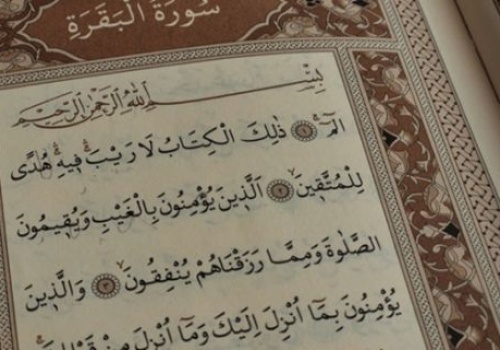 سُورَةُ الْبَقَرَةِ
بِسْمِ اللّٰهِ الرَّحْمٰنِ الرَّحِيمِ
الٓمٓ ﴿١﴾ ذٰلِكَ الْكِتَابُ لَا رَيْبَ فِيهِ هُدًى
لِلْمُتَّقِينَ ﴿٢﴾ اَلَّذِينَ يُؤْمِنُونَ بِالْغَيْبِ وَيُقِيمُونَ
الصَّلٰوةَ وَمِمَّا رَزَقْنَاهُمْ يُنْفِقُونَ ﴿٣﴾ وَالَّذِينَ
يُؤْمِنُونَ بِمَٓا اُنْزِلَ اِلَيْكَ وَمَٓا اُنْزِلَ مِنْ